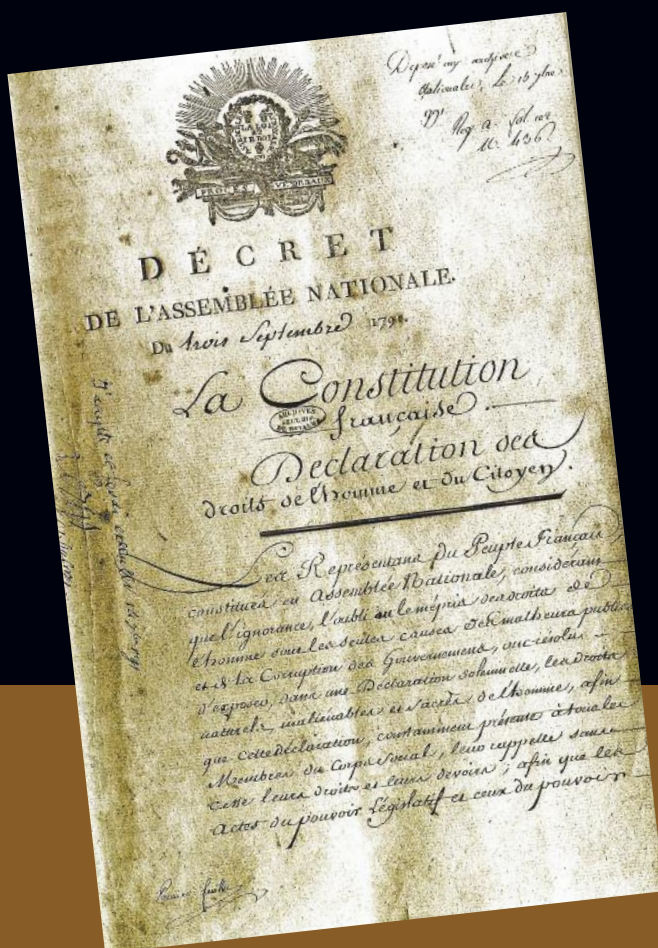 LA LOI
ET
LE ROI
PROCÈS VERBAUX
Déposé aux archives
Nationales, le 16 7bre
1791
Reg. a. fol. 102
N. 436
DÉCRET
DE L'ASSEMBLÉE NATIONALE.
Du trois Septembre 1791.
La Constitution
française.
ARCHIVES
Déclaration des
droits de l'homme et du Citoyen.
Les Représentans du Peuple Français,
constitués en Assemblée Nationale, considérant
que l'ignorance, l'oubli ou le mépris des droits de
l'homme sont les seules causes des malheurs publics
et de la Corruption des Gouvernemens, ont résolu
d'exposer, dans une Déclaration solemnelle, les droits
naturels, inaliénables et sacrés de l'homme, afin
que cette déclaration, constamment présente à tous les
Membres du Corps social, leur rappelle sans
cesse leurs droits et leurs devoirs ; afin que les
actes du pouvoir législatif et ceux du pouvoir